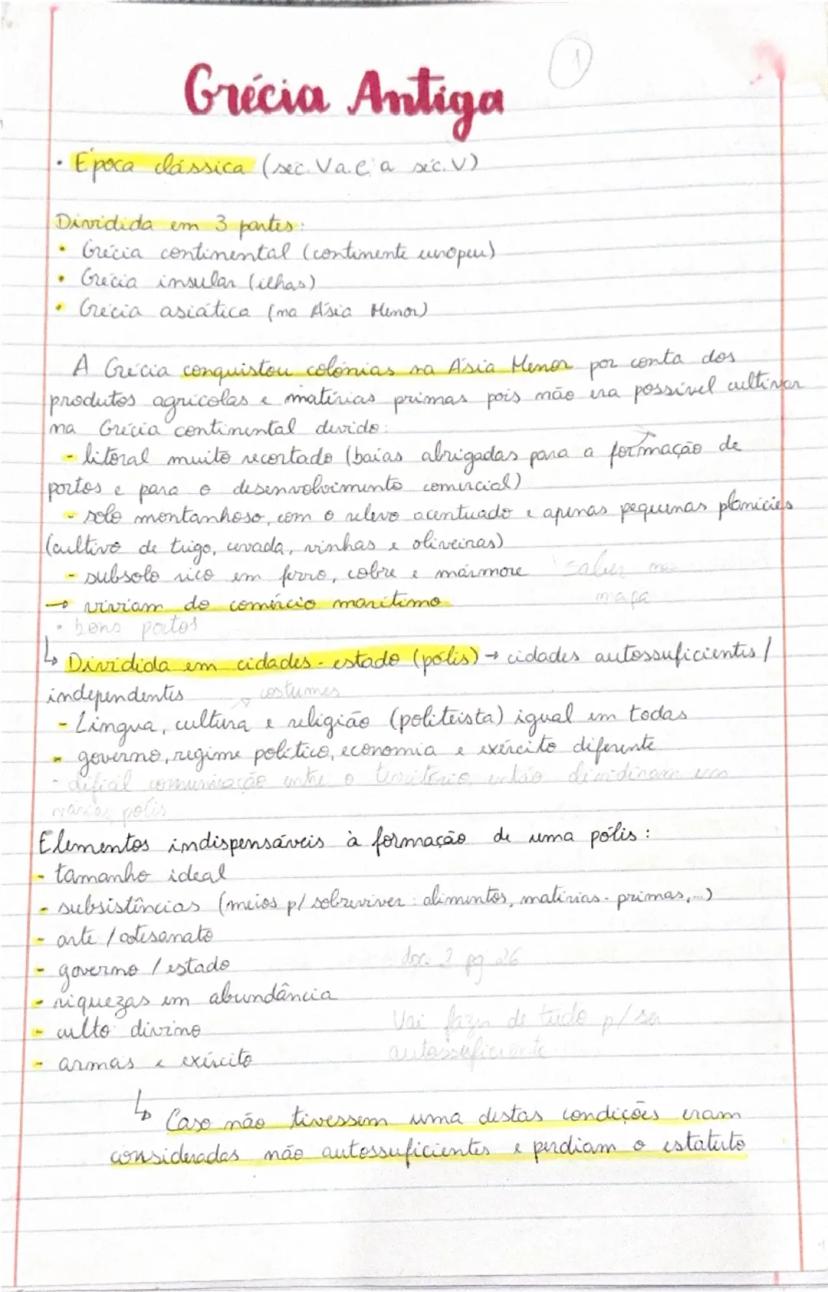 1
Grécia Antiga
• Época clássica (séc. V a.C a séc. V)
Dividida em 3 partes:
• Grécia continental (continente europeu)
• Grécia insular (ilhas)
• Grécia asiática (na Ásia Menor)
A Grécia conquistou colónias na Ásia Menor por conta dos
produtos agrícolas e matérias primas pois não era possível cultivar
na Grécia continental devido:
- litoral muito recortado (baías abrigadas para a formação de
portos e para o desenvolvimento comercial)
- solo montanhoso, com o relevo acentuado e apenas pequenas planícies
(cultivo de trigo, cevada, vinhas e oliveiras)
- subsolo rico em ferro, cobre e mármore saber no
→ viviam do comércio marítimo mapa
• bons portos
↳ Dividida em cidades-estado (pólis) → cidades autossuficientes /
independentes costumes
- Língua, cultura e religião (politeísta) igual em todas
- governo, regime político, economia e exército diferente
- difícil comunicação entre o território, então dividiram em
várias polis
Elementos indispensáveis à formação de uma pólis:
- tamanho ideal
- subsistências (meios p/ sobreviver: alimentos, matérias-primas,...)
- arte / artesanato
- governo / estado doc. 2 pg 26
- riquezas em abundância
- culto divino Vai fazer de tudo p/ ser
- armas e exército autossuficiente
↳ Caso não tivessem uma destas condições eram
consideradas não autossuficientes e perdiam o estatuto